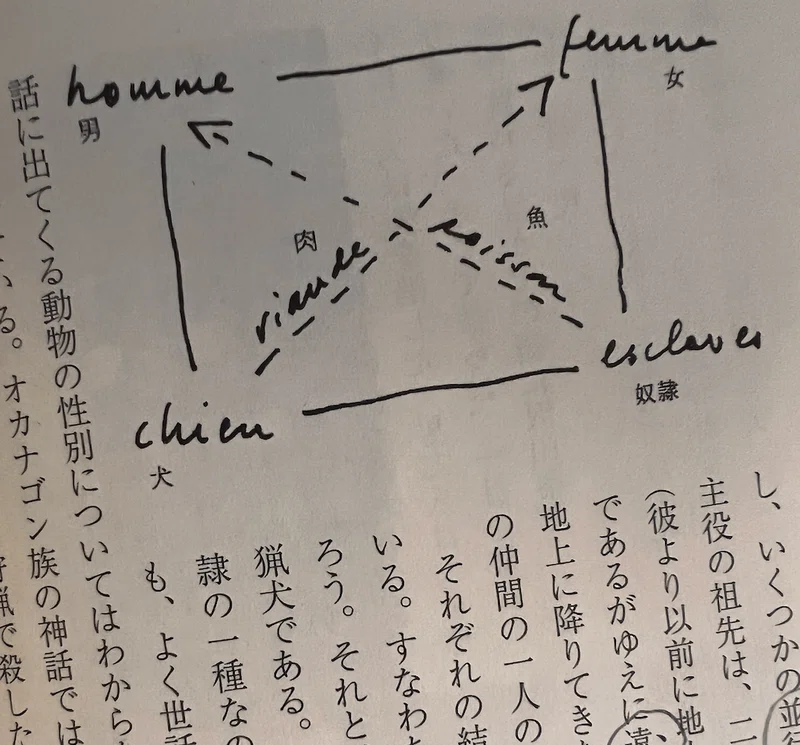 homme
男
femme
女
viande
肉
poisson
魚
chien
犬
esclaves
奴隷
し、いくつかの並行
主役の祖先は、二
（彼より以前に地
であるがゆえに遠
地上に降りてき
の仲間の一人の
それぞれの結
いる。すなわ
ろう。それと
猟犬である。
隷の一種なの
も、よく世話
話に出てくる動物の性別についてはわから
る。オカナゴン族の神話では
狩猟で殺した